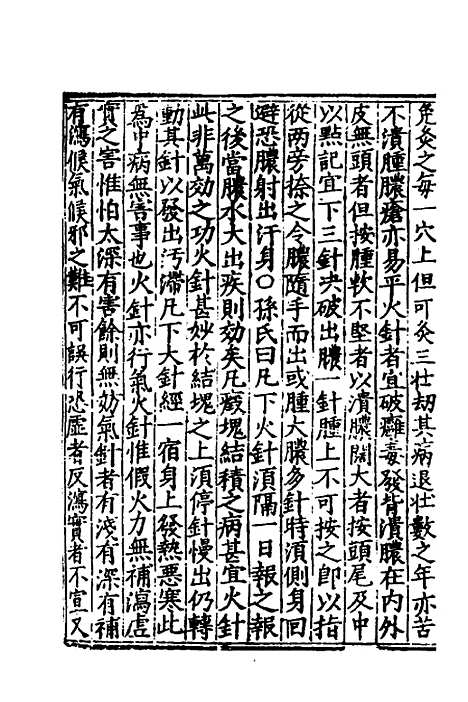 凫灸之每一穴上但可灸三壮劫其病退壮數之年亦苦
不潰腫膿瘡亦易平火針者宜破癰毒發背潰膿在内外
皮無頭者但按腫軟不堅者以潰膿闊大者按頭尾及中
以點記宜下三針决破出膿一針腫上不可按之即以指
從兩旁捺之令膿隨手而出或腫大膿多針特湏側身回
避恐膿射出汗身○孫氏曰凡下火針湏隔一日報之報
之後當膿水大出疾則効矣凡癥塊結積之病甚宜火針
此非萬効之功火針甚妙於結塊之上湏停針慢出仍轉
動其針以發出汚滯凡下大針經一宿身上發熱悪寒此
為中病無害事也火針亦行氣火針惟假火力無補瀉虚
實之害惟怕太深有害餘則無妨氣針者有淺有深有補
有瀉候氣候邪之難不可誤行恐虚者反瀉實者不宣又